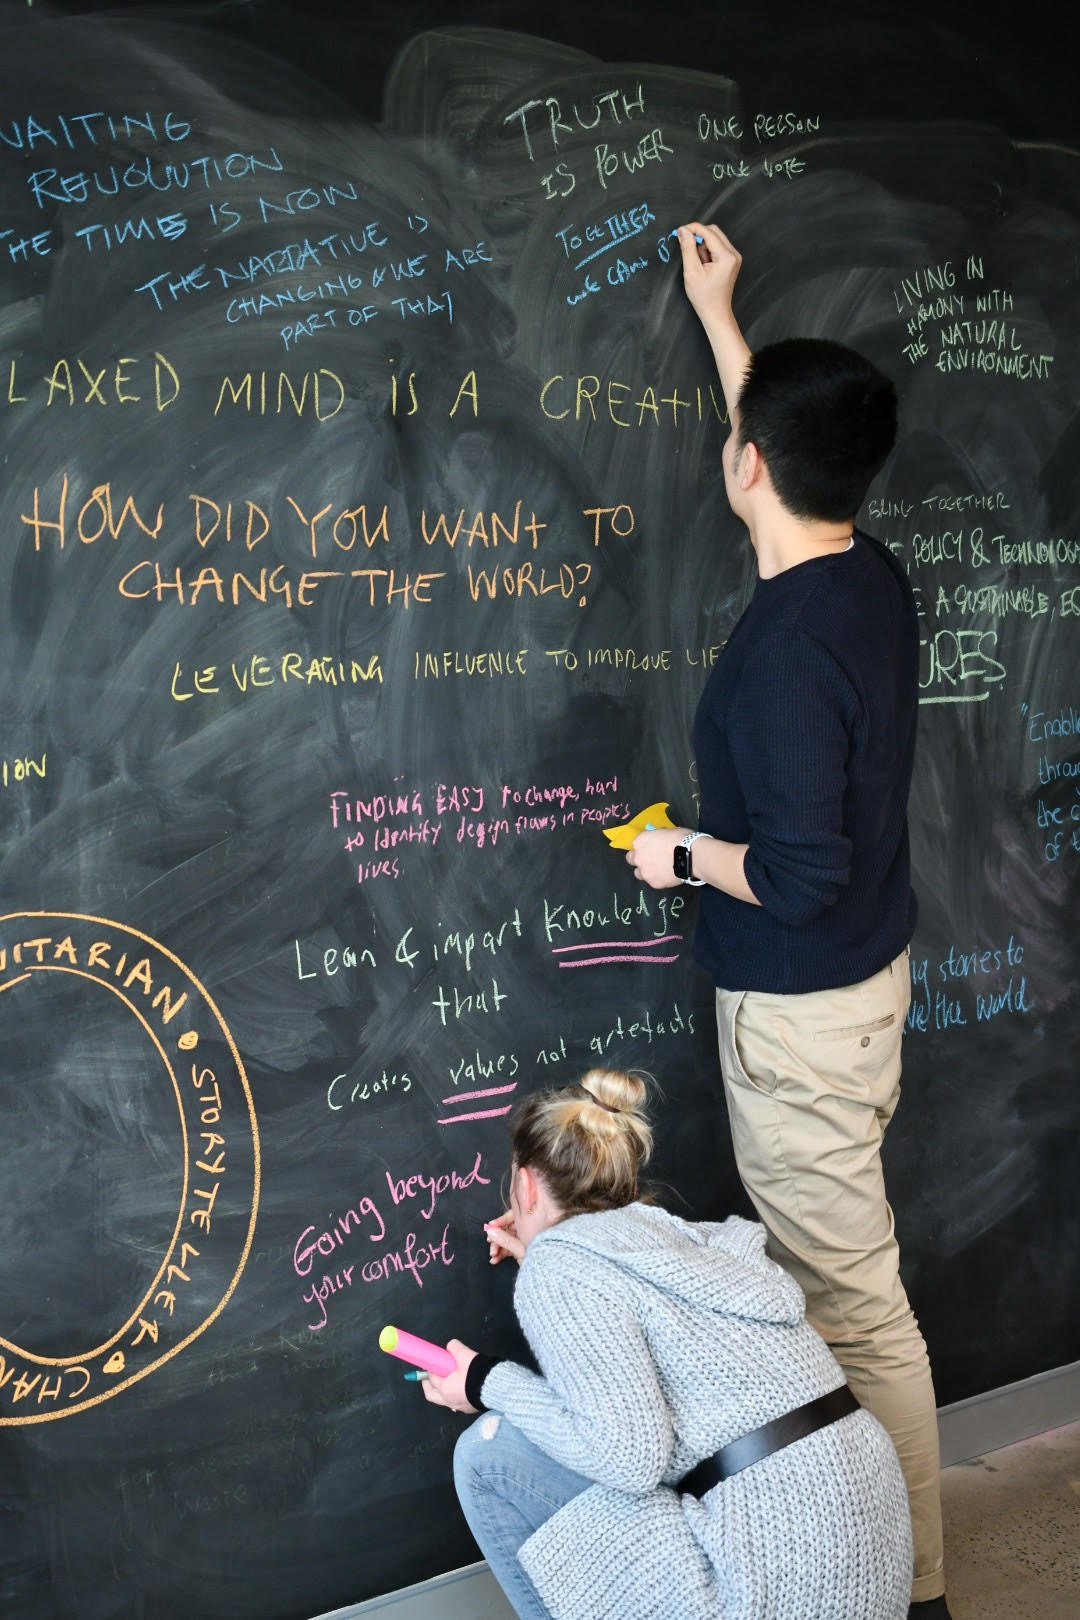 WAITING
REVOLUTION
THE TIMES IS NOW
THE NARRATIVE IS
CHANGING & WE ARE
PART OF THAT
TRUTH
IS POWER
ONE PERSON
ONE VOTE
TOGETHER
WE CAN B
LIVING IN
HARMONY WITH
THE NATURAL
ENVIRONMENT
LAXED MIND IS A CREATIV
HOW DID YOU WANT TO
CHANGE THE WORLD?
BRING TOGETHER
, POLICY & TECHNOLOGY
E A SUSTAINABLE, EQ
URES
LEVERAGING INFLUENCE TO IMPROVE LIF
"Enable
throu
the
of t
ION
FINDING EASY to change, hard
to identify design flaws in people's
lives.
Lean & impart knowledge
that
Creates values not artefacts
ng stories to
ve the world
UITARIAN • STORYTELLER • CHAN
Going beyond
your comfort